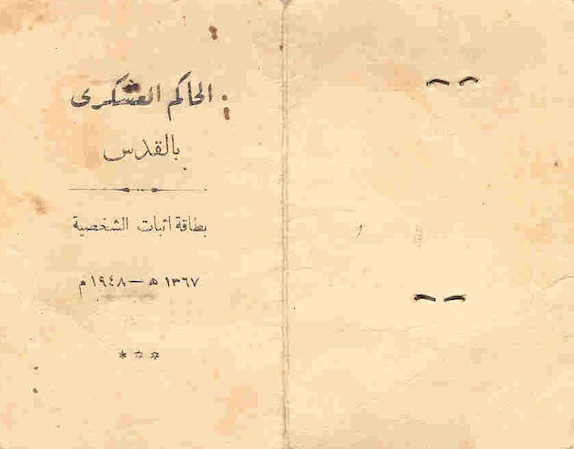 الحاكم العسكرى
بالقدس
بطاقة اثبات الشخصية
١٣٦٧ ھ — ١٩٤٨ م
* * *